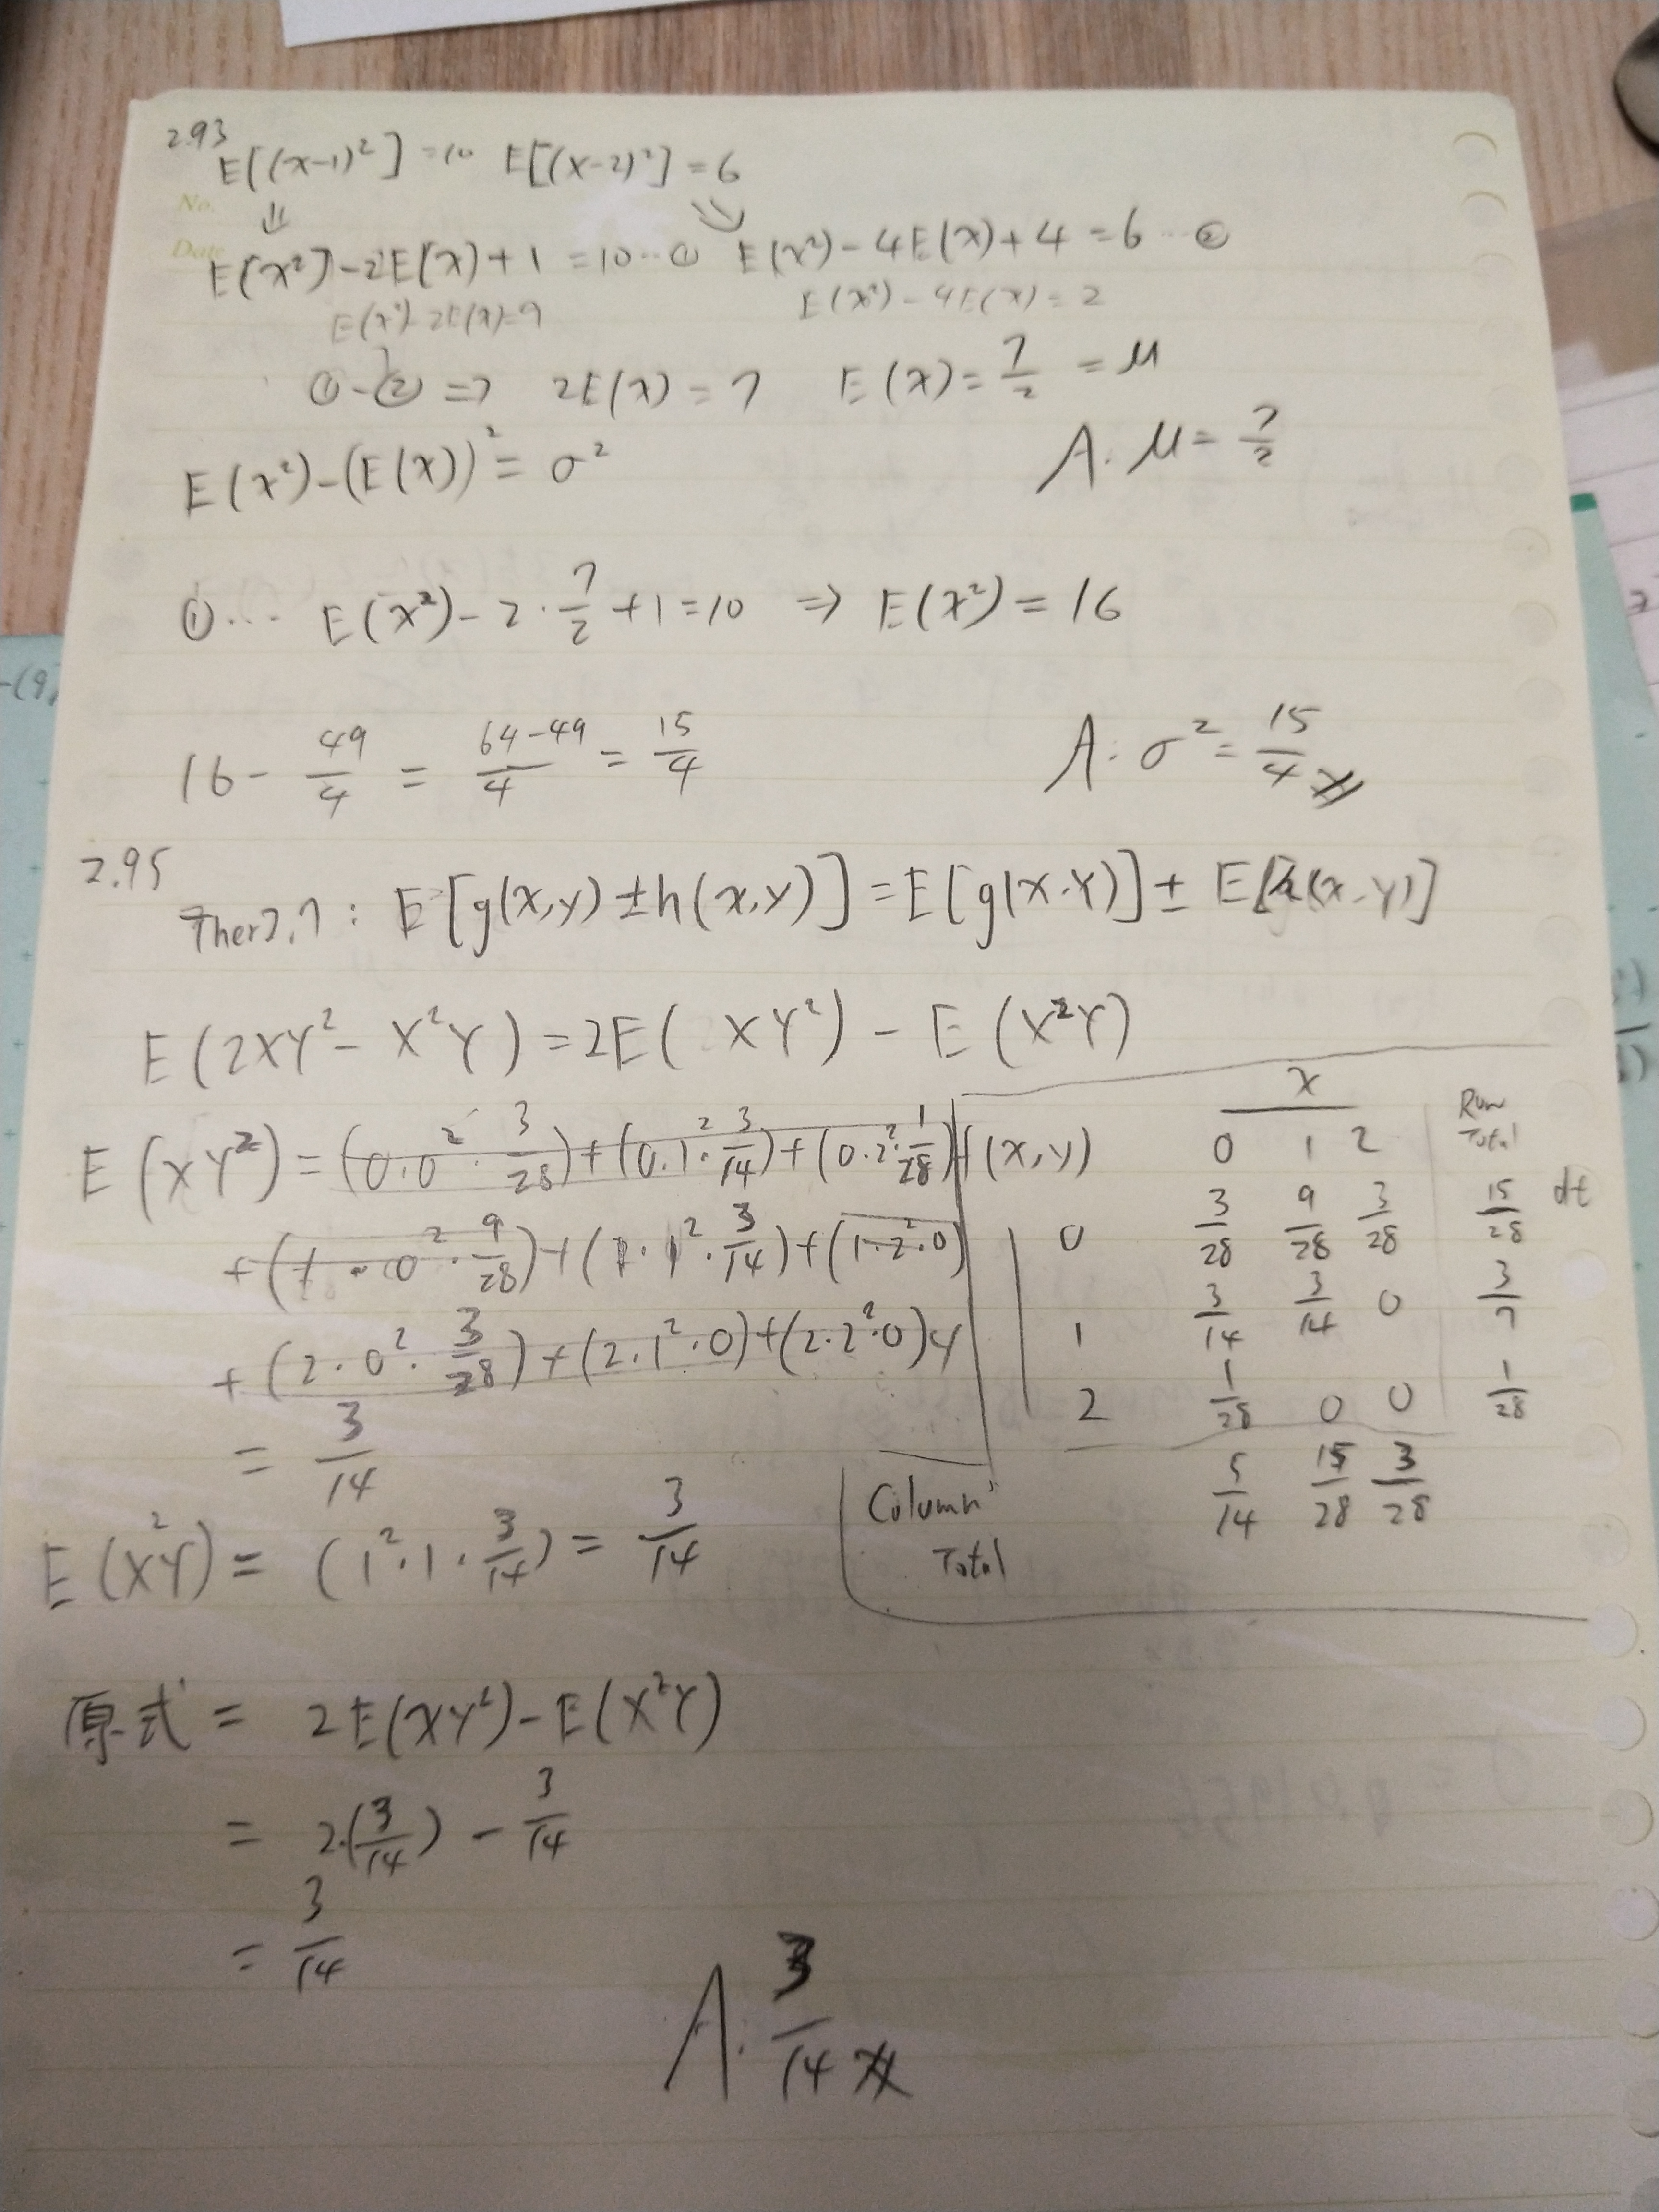 2.93
E[(x-1)²] = 10 E[(x-2)²] = 6
No.
⇓ ⇘
Date
E[x²]-2E[x)+1 = 10 … ① E(x²)-4E(x)+4 = 6 … ②
E(x²)-2E(x)=9 E(x²)-4E(x)=2
①-② => 2E(x) = 7 E(x) = 7/2 = μ
E(x²)-(E(x))² = σ² A. μ = 7/2
① … E(x²)-2·7/2+1=10 => E(x²) = 16
16 - 49/4 = 64-49/4 = 15/4 A. σ² = 15/4
2.95
Ther2.7 : E[g(x,y) ± h(x,y)] = E[g(x,y)] ± E[h(x,y)]
E(2XY² - X²Y) = 2E( XY²) - E(X²Y)
E(XY²) = (0·0²·3/28)+(0·1²·3/14)+(0·2²·1/28)
+(1·0²·9/28)+(1·1²·3/14)+(1·2²·0)
+(2·0²·3/28)+(2·1²·0)+(2·2²·0)
= 3/14
x Row Total
f(x,y) 0 1 2
0 3/28 9/28 3/28 15/28
1 3/14 3/14 0 3/7
y
2 1/28 0 0 1/28
Column Total 5/14 15/28 3/28
E(X²Y) = (1²·1·3/14) = 3/14
原式 = 2E(XY²)-E(X²Y)
= 2·(3/14) - 3/14
= 3/14
A. 3/14